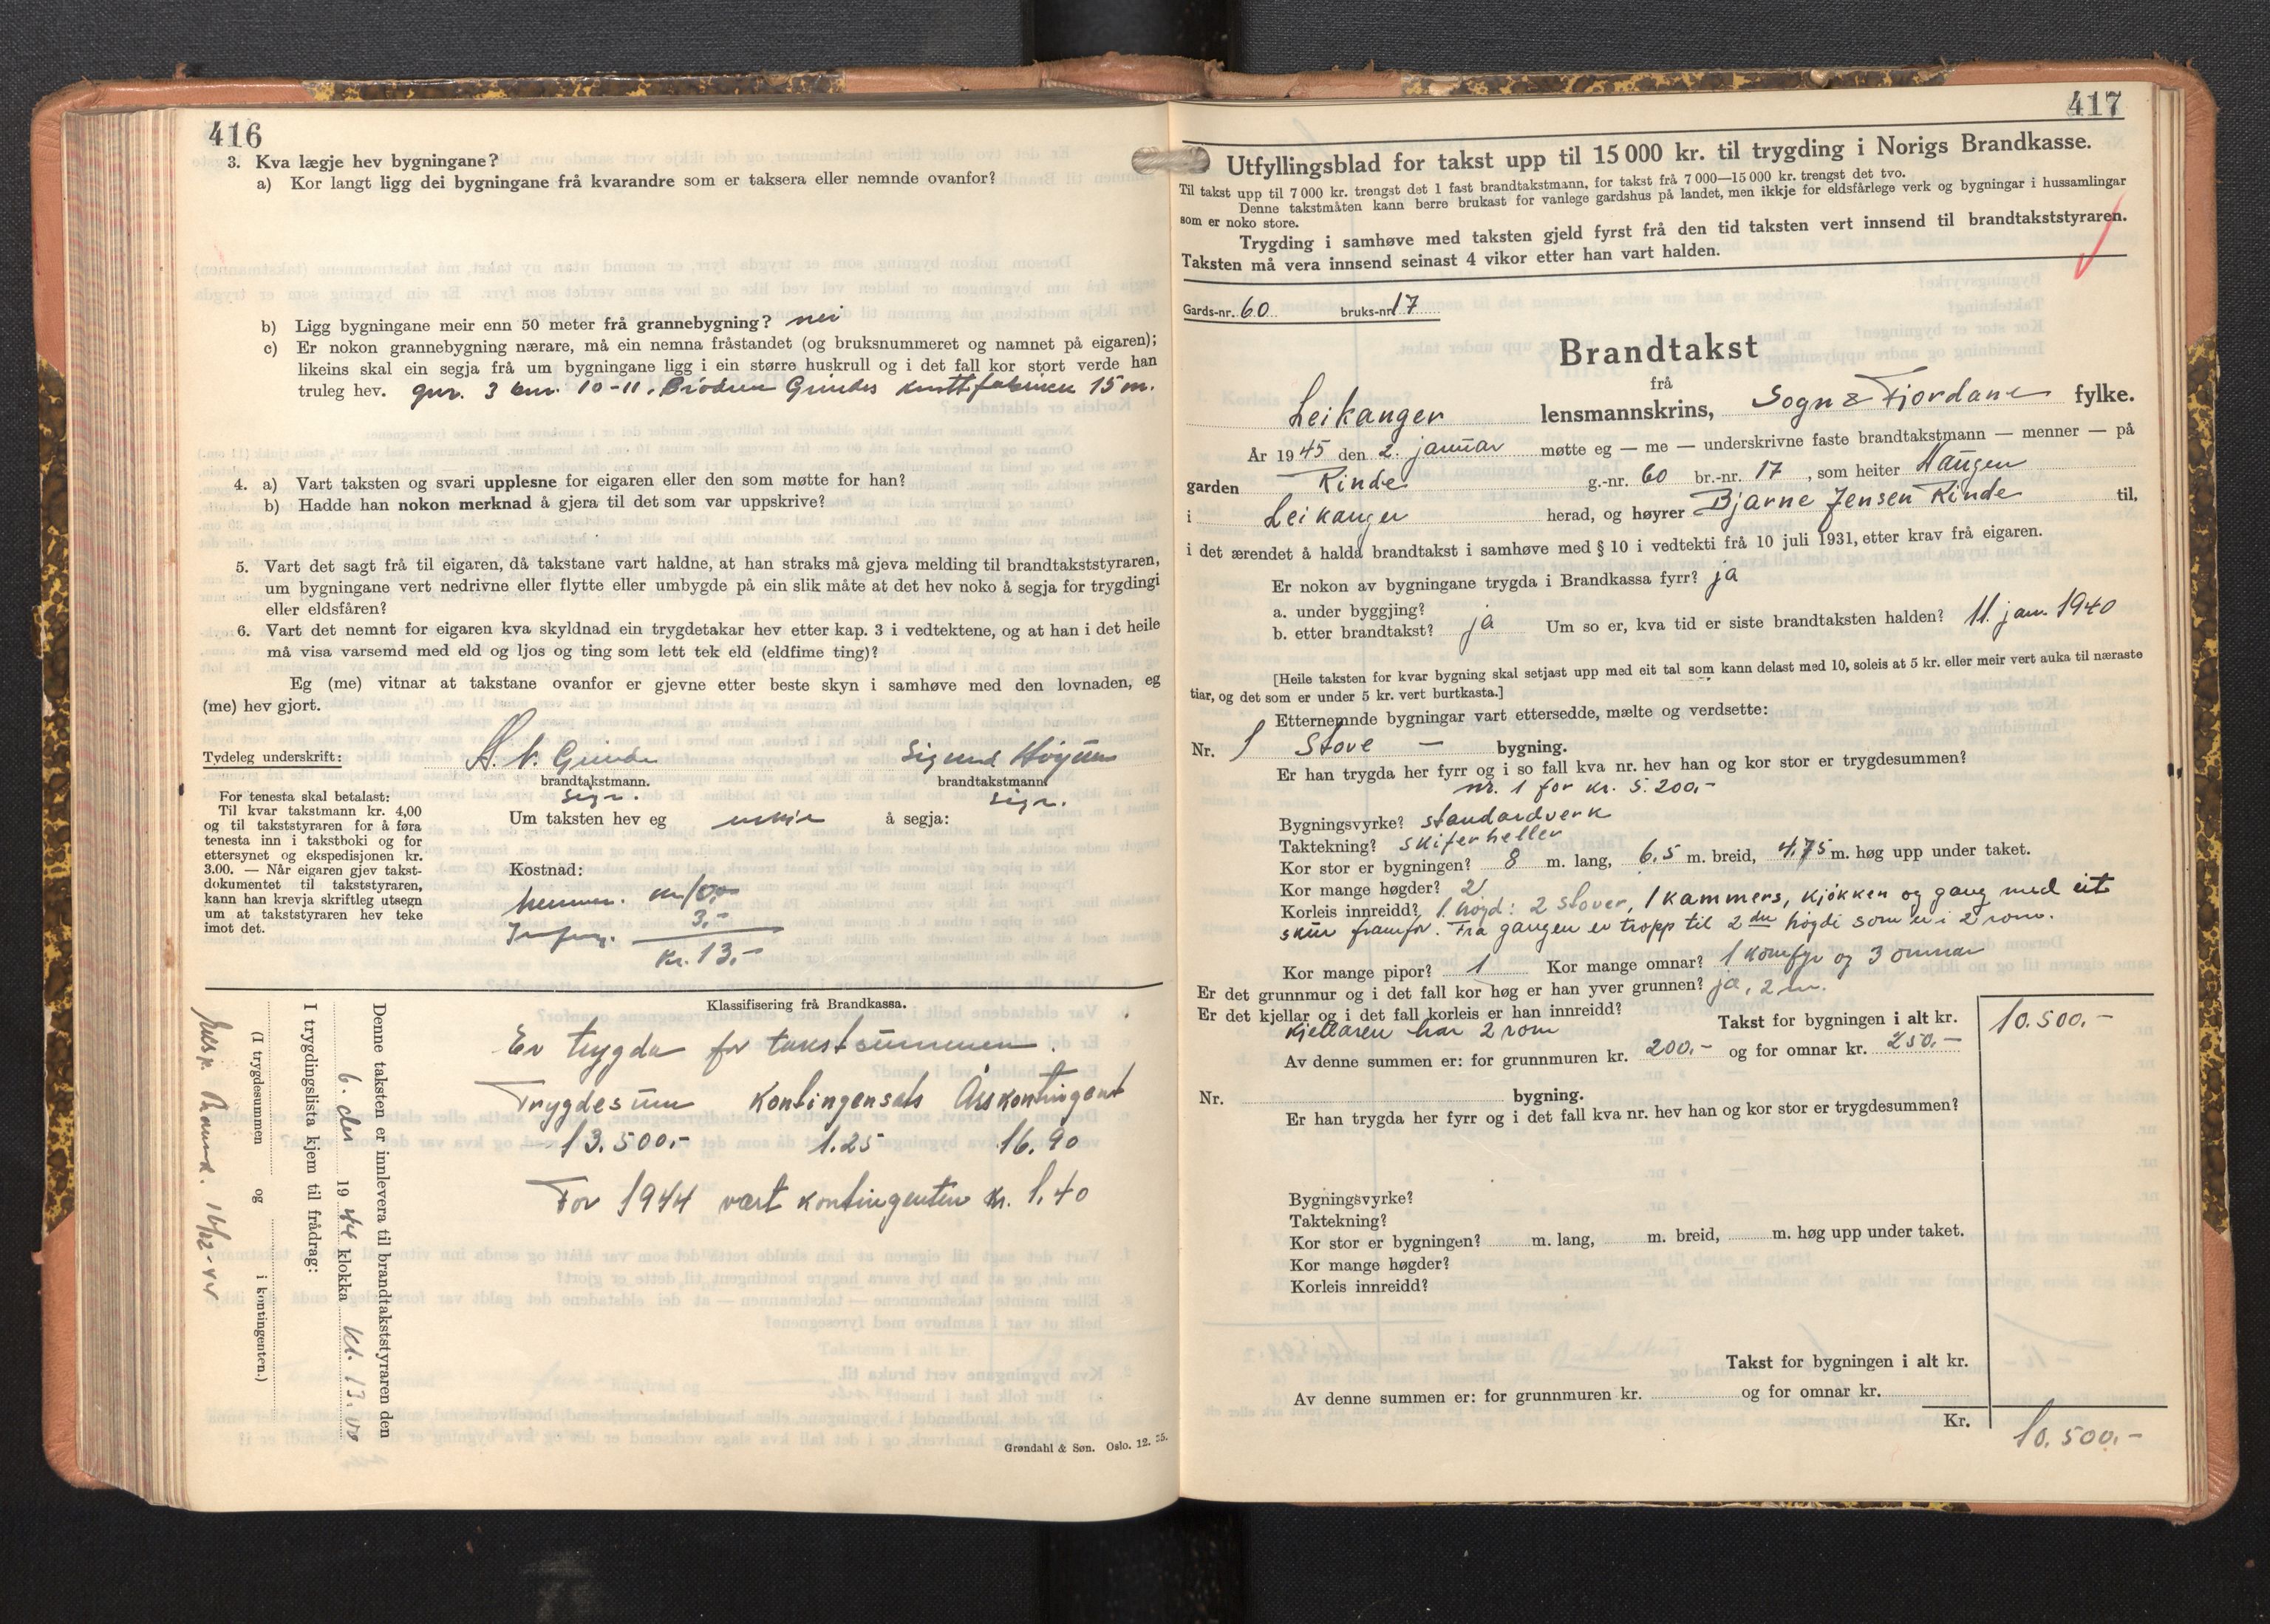 416
3. Kva lægje hev bygningane?
a) Kor langt ligg dei bygningane frå kvarandre som er taksera eller nemnde ovanfor?
b) Ligg bygningane meir enn 50 meter frå grannebygning? nei
c) Er nokon grannebygning nærare, må ein nemna fråstandet (og bruksnummeret og namnet på eigaren);
likeins skal ein segja frå um bygningane ligg i ein større huskrull og i det fall kor stort verde han
truleg hev. gnr. 3 bnr. 10-11. Brødrene Grindes 15 m.
4. a) Vart taksten og svari upplesne for eigaren eller den som møtte for han?
b) Hadde han nokon merknad å gjera til det som var uppskrive?
5. Vart det sagt frå til eigaren, då takstane vart haldne, at han straks må gjeva melding til brandtakststyraren,
um bygningane vert nedrivne eller flytte eller umbygde på ein slik måte at det hev noko å segja for trygdingi
eller eldsfåren?
6. Vart det nemnt for eigaren kva skyldnad ein trygdetakar hev etter kap. 3 i vedtektene, og at han i det heile
må visa varsemd med eld og ljos og ting som lett tek eld (eldfime ting)?
Eg (me) vitnar at takstane ovanfor er gjevne etter beste skyn i samhøve med den lovnaden, eg
(me) hev gjort.
Tydeleg underskrift: Grinde Sigurd
brandtakstmann. brandtakstmann.
sign. sign.
For tenesta skal betalast:
Til kvar takstmann kr. 4,00
og til takststyraren for å føra
tenesta inn i takstboki og for
ettersynet og ekspedisjonen kr.
3.00. — Når eigaren gjev takst-
dokumentet til takststyraren,
kann han krevja skriftleg utsegn
um at takststyraren hev teke
imot det.
Um taksten hev eg å segja:
Kostnad:
3.-
kr. 13.-
Klassifisering frå Brandkassa.
Er trygda for takstsummen.
Trygdesum Kontingensats Årskontingent
13.500.- 1.25 16.90
For 1944 vert kontingenten kr. 1.40
Denne taksten er innlevera til brandtakststyraren den
6. des 1944 klokka kl. 13.00
I trygdingslista kjem til frådrag:
(I trygdesummen og i kontingenten.)
16/12-44
Grøndahl & Søn. Oslo. 12. 35.
417
Utfyllingsblad for takst upp til 15 000 kr. til trygding i Norigs Brandkasse.
Til takst upp til 7 000 kr. trengst det 1 fast brandtakstmann, for takst frå 7 000—15 000 kr. trengst det tvo.
Denne takstmåten kann berre brukast for vanlege gardshus på landet, men ikkje for eldsfårlege verk og bygningar i hussamlingar
som er noko store.
Trygding i samhøve med taksten gjeld fyrst frå den tid taksten vert innsend til brandtakststyraren.
Taksten må vera innsend seinast 4 vikor etter han vart halden.
Gards-nr. 60 bruks-nr. 17
Brandtakst
frå
Leikanger lensmannskrins, Sogn & Fjordane fylke.
År 1945 den 2. januar møtte eg — me — underskrivne faste brandtakstmann — menner — på
garden Rinde g.-nr. 60 br.-nr. 17, som heiter Haugen
i Leikanger herad, og høyrer Bjarne Jensen Rinde til,
i det ærendet å halda brandtakst i samhøve med § 10 i vedtekti frå 10 juli 1931, etter krav frå eigaren.
Er nokon av bygningane trygda i Brandkassa fyrr? ja
a. under byggjing?
b. etter brandtakst? ja Um so er, kva tid er siste brandtaksten halden? 11. jan. 1940
[Heile taksten for kvar bygning skal setjast upp med eit tal som kann delast med 10, soleis at 5 kr. eller meir vert auka til næraste
tiar, og det som er under 5 kr. vert burtkasta.]
Etternemnde bygningar vart ettersedde, mælte og verdsette:
Nr. 1 Stove — bygning.
Er han trygda her fyrr og i so fall kva nr. hev han og kor stor er trygdesummen?
nr. 1 for kr. 5.200.-
Bygningsvyrke? standardverk
Taktekning? skiferheller
Kor stor er bygningen? 8 m. lang, 6.5 m. breid, 4.75 m. høg upp under taket.
Kor mange høgder? 2
Korleis innreidd? 1. høgd: 2 stover, 1 kammers, kjøkken og gang med eit
skur framfor. Frå gangen er tropp til 2 dre høgdi som er i 2 rom.
Kor mange pipor? 1 Kor mange omnar? 1 komfyr og 3 omnar
Er det grunnmur og i det fall kor høg er han yver grunnen? ja, 2 m.
Er det kjellar og i det fall korleis er han innreidd?
Kjellaren har 2 rom Takst for bygningen i alt kr. 10.500.-
Av denne summen er: for grunnmuren kr. 200.- og for omnar kr. 250.-
Nr. bygning.
Er han trygda her fyrr og i det fall kva nr. hev han og kor stor er trygdesummen?
Bygningsvyrke?
Taktekning?
Kor stor er bygningen? m. lang, m. breid, m. høg upp under taket.
Kor mange høgder?
Korleis innreidd?
Takst for bygningen i alt kr.
Av denne summen er: for grunnmuren kr. og for omnar kr.
Kr. 10.500.-